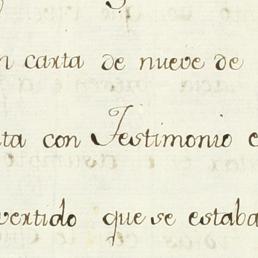 n carta de nueve de
ta con Testimonio e
vertido que se estaba